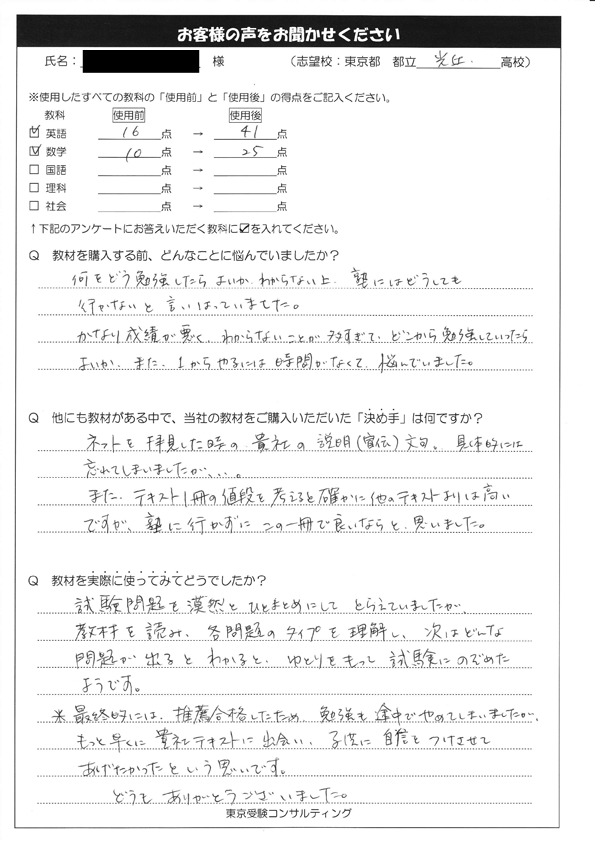 お客様の声をお聞かせください
氏名： 様 （志望校：東京都 都立 光丘 高校）
※使用したすべての教科の「使用前」と「使用後」の得点をご記入ください。
教科 使用前 使用後
☑ 英語 16 点 → 41 点
☑ 数学 10 点 → 25 点
□ 国語 点 → 点
□ 理科 点 → 点
□ 社会 点 → 点
↑下記のアンケートにお答えいただく教科に☑を入れてください。
Q 教材を購入する前、どんなことに悩んでいましたか？
何をどう勉強したらよいか、わからない上、塾にはどうしても
行かないと言いはっていました。
かなり成績が悪く、わからないことが多すぎて、どこから勉強していったら
よいか、また、1からやるには時間がなくて、悩んでいました。
Q 他にも教材がある中で、当社の教材をご購入いただいた「決め手」は何ですか？
ネットを拝見した時の貴社の説明（宣伝）文句。具体的には
忘れてしまいましたが、、、。
また、テキスト1冊の値段を考えると確かに他のテキストよりは高い
ですが、塾に行かずにこの一冊で良いならと、思いました。
Q 教材を実際に使ってみてどうでしたか？
試験問題を漠然とひとまとめにしてとらえていましたが、
教材を読み、各問題のタイプを理解し、次はどんな
問題が出るとわかると、ゆとりをもって試験にのぞめた
ようです。
※最終的には、推薦合格したため、勉強も途中でやめてしまいましたが、
もっと早くに貴社テキストに出会い、子供に自信をつけさせて
あげたかったという思いです。
どうもありがとうございました。
東京受験コンサルティング